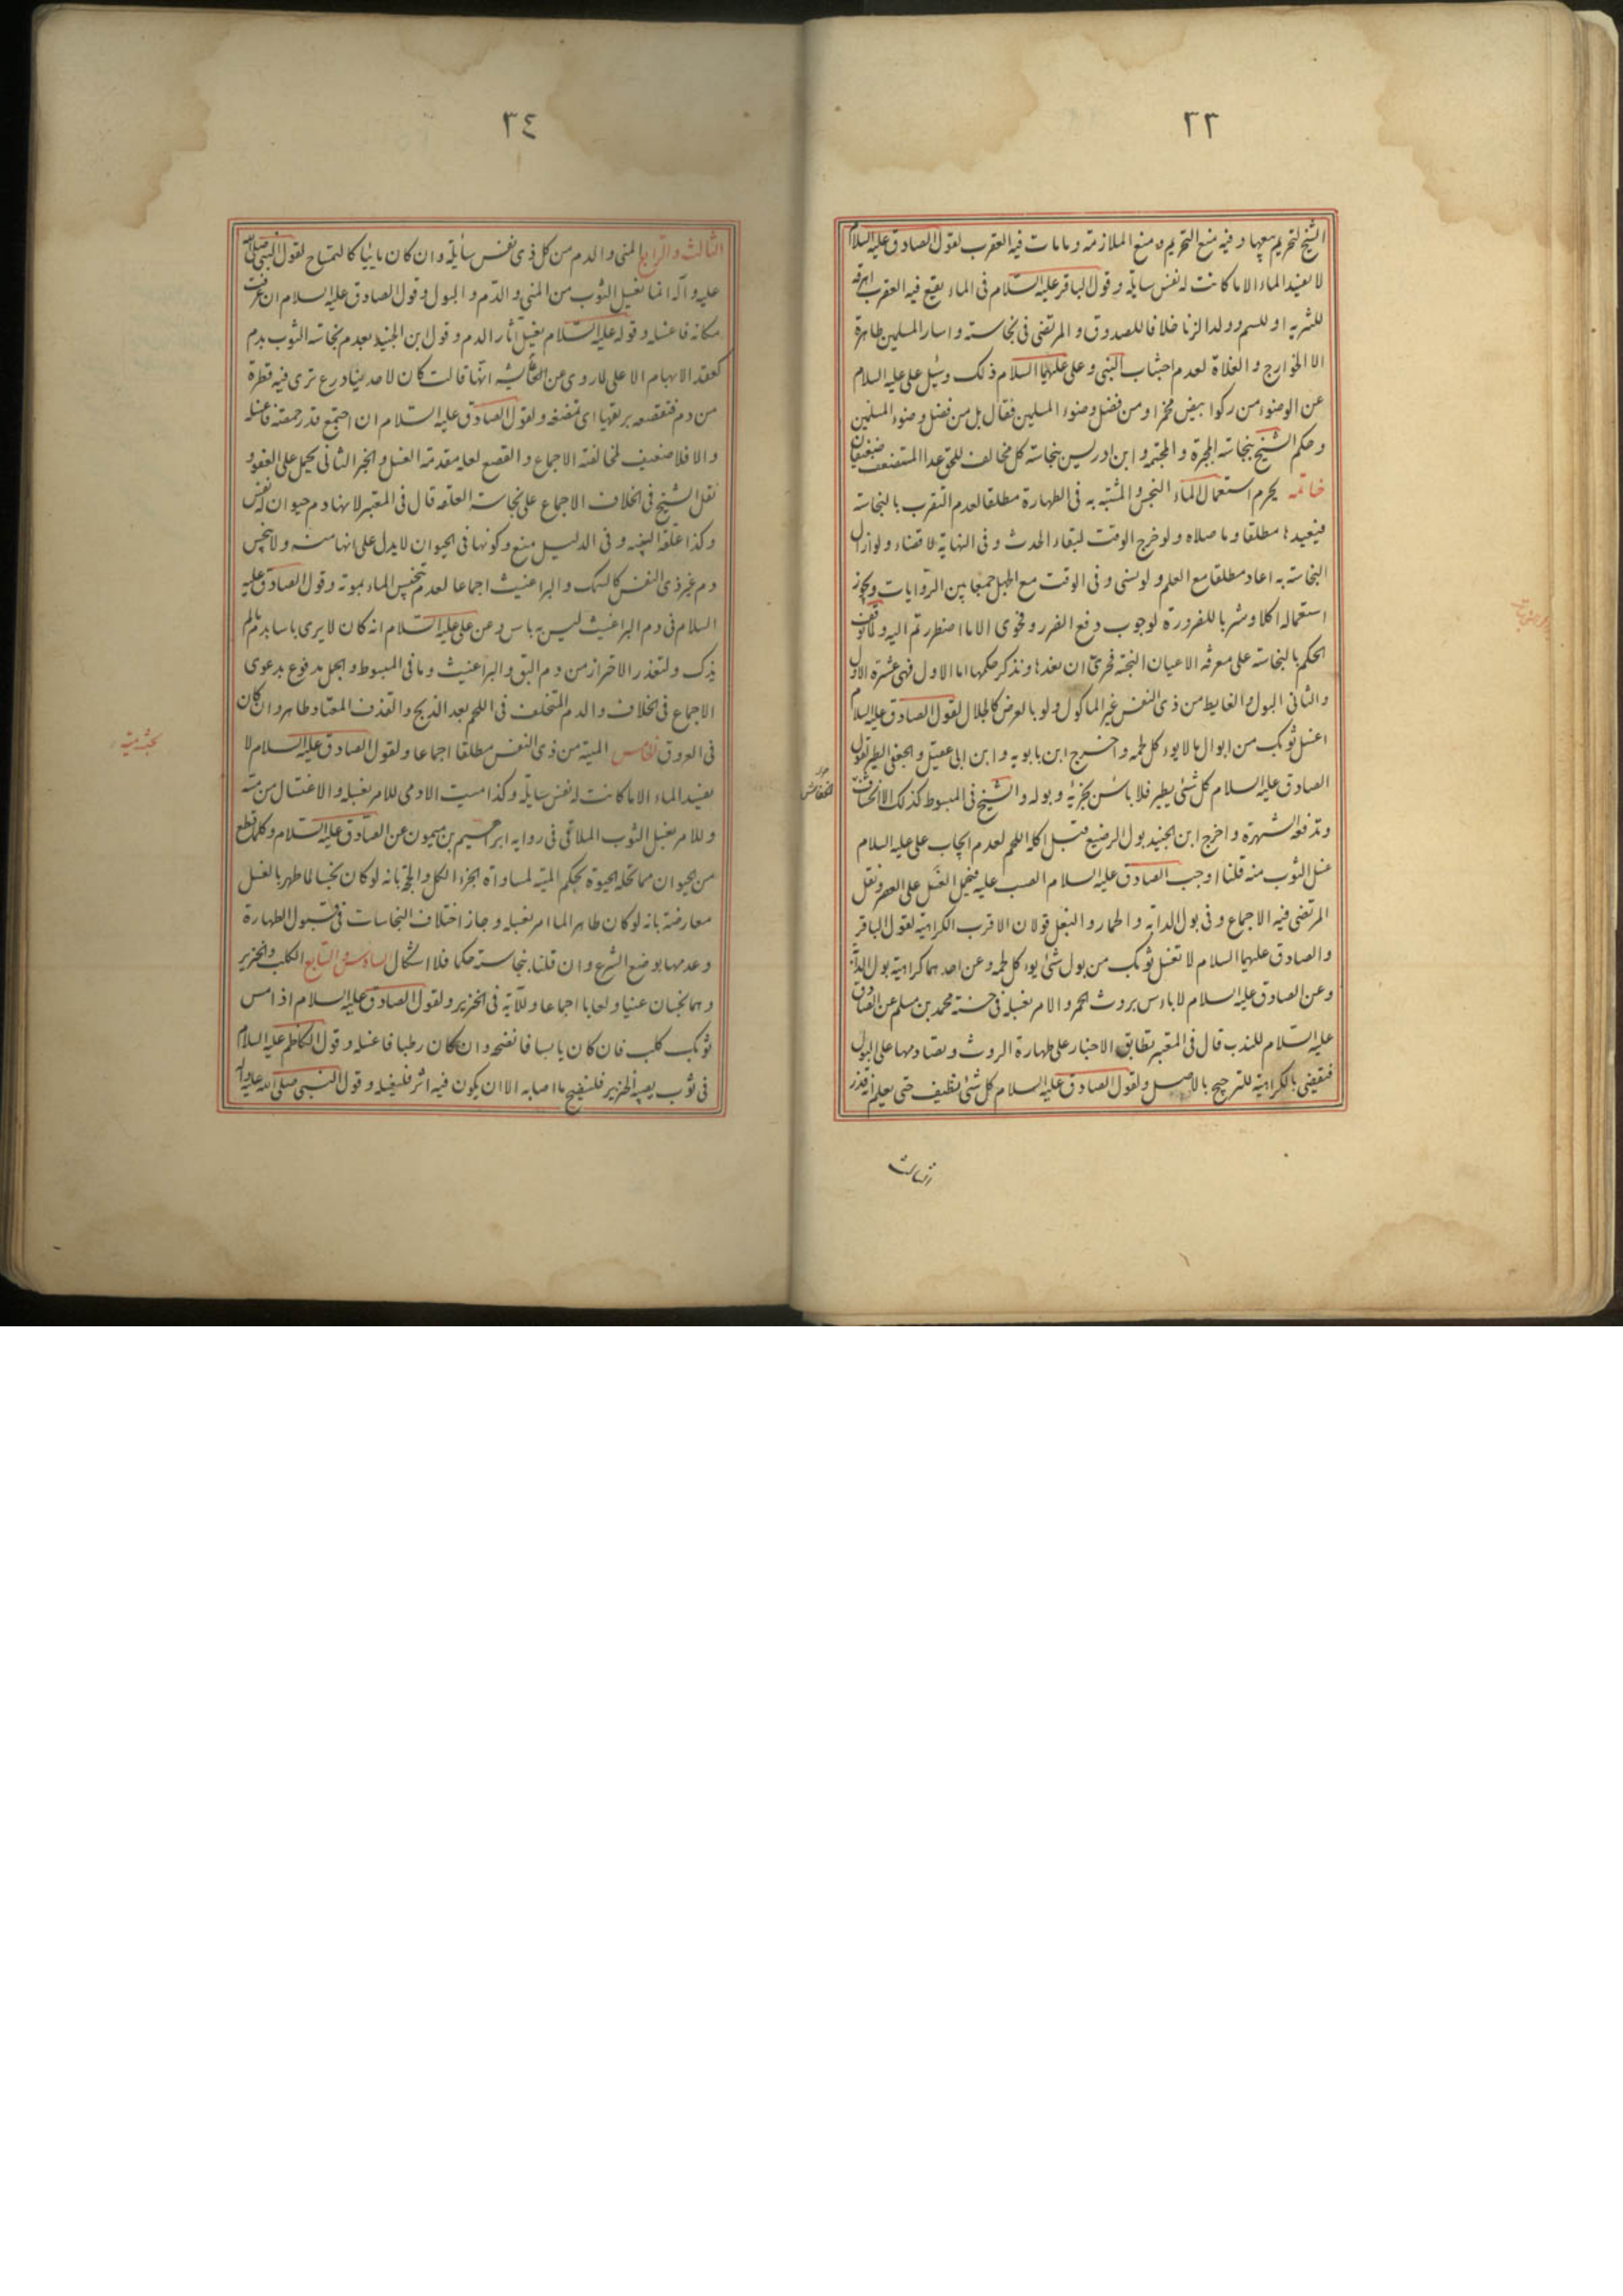 ٣٣
الشيخ لتحريم بيعها وفيه منع التحريم و منع الملازمة وما مات فيه العقرب لقول الصادق عليه السلام
لا يفسد الماء الا ما كانت له نفس سايلة وقول الباقر عليه السلام في الماء يقع فيه العقرب اهرقه
للشربة او للسم وولد الزنا خلافا للصدوق و المرتضى في نجاسته و اسار المسلمين طاهرة
الا الخوارج و الغلاة لعدم اجتناب النبي و على عليهما السلام ذلك وسئل على عليه السلام
عن الوضوء من ركوا ابيض مخمرا ومن فضل وضوء المسلمين فقال بل من فضل وضوء المسلمين
وحكم الشيخ بنجاسة المجبرة و المجسمة و ابن ادريس بنجاسة كل مخالف للحق عدا المستضعف ضعيفان
خاتمة يحرم استعمال الماء النجس و المشتبه به في الطهارة مطلقا لعدم التقرب بالنجاسة
فيعيدها مطلقا وما صلاه ولو خرج الوقت لبقاء الحدث و في النهاية لا قضاء ولو ازال
النجاسة به اعاد مطلقا مع العلم ولو نسى و في الوقت مع الجهل جمعا بين الروايات ويجوز
استعماله اكلا وشربا للضرورة لوجوب دفع الضرر وفحوى الا ما اضطررتم اليه ولما توقف
الحكم بالنجاسة على معرفة الاعيان النجسة فحرى ان نعدها ونذكر حكمها اما الاول فهى عشرة الاول
والثاني البول و الغايط من ذى النفس غير الماكول ولو بالعرض كالجلال لقول الصادق عليه السلام
اغسل ثوبك من ابوال ما لا يوء كل لحمه و اخرج ابن بابويه و ابن ابى عقيل و الجعفى الطير لقول
الصادق عليه السلام كل شئ يطير فلا باس بخرئه و بوله و الشيخ في المبسوط كذلك الا الخشاف
خرء الخفاش
وتدفعه الشهرة و اخرج ابن الجنيد بول الرضيع قبل اكله اللحم لعدم ايجاب على عليه السلام
غسل الثوب منه قلنا اوجب الصادق عليه السلام الصب عليه فيحمل الغسل على العصر ونقل
المرتضى فيه الاجماع و في بول الدابة و الحمار و البغل قولان الاقرب الكراهية لقول الباقر
و الصادق عليهما السلام لا تغسل ثوبك من بول شئ يوء كل لحمه وعن احدهما كراهية بول الدابة
وعن الصادق عليه السلام لا باءس بروث الحمر و الامر بغسله في حسنة محمد بن مسلم عن الصادق
عليه السلام للندب قال في المعتبر تطابق الاخبار على طهارة الروث و تصادمها على البول
فتقضى بالكراهية للترجيح بالاصل ولقول الصادق عليه السلام كل شئ نظيف حتى يعلم انه قذر
الثالث
٣٤
الثالث و الرابع المنى و الدم من كل ذى نفس سايلة وان كان مايئيا كالتمساح لقول النبي صلى الله
عليه و اله انما تغسل الثوب من المنى و الدم و البول و قول الصادق عليه السلام ان عرفت
مكانه فاغسله وقوله عليه السلام يغسل اثار الدم و قول ابن الجنيد بعدم نجاسة الثوب بدم
كعقد الابهام الاعلى لما روى عن العائشه انها قالت كان لاحدينا درع ترى فيه قطرة
من دم فتقصعه بريقها اى تمضغه ولقول الصادق عليه السلام ان اجتمع قدر حمصة فاغسله
والا فلا ضعيف لمخالفته الاجماع و القصع لعله مقدمة الغسل و الخبر الثانى يحمل على العفو و
نقل الشيخ في الخلاف الاجماع على نجاسة العلقه قال في المعتبر لانها دم حيوان له نفس
وكذا علقة البيضه و في الدليل منع وكونها في الحيوان لا يدل على انها منه ولا ينجس
دم غير ذى النفس كالسمك و البراغيث اجماعا لعدم تنجيس الماء بموته وقول الصادق عليه
السلام في دم البراغيث ليس به باس وعن على عليه السلام انه كان لا يرى باسا بدم ما لم
يذك ولتعذر الاحتراز من دم البق و البراغيث وما في المبسوط و الجمل مدفوع بدعوى
الاجماع في الخلاف و الدم المتخلف في اللحم بعد الذبح و القذف المعتاد طاهر وان كان
في العروق الخامس الميتة من ذى النفس مطلقا اجماعا ولقول الصادق عليه السلام لا
يفسد الماء الا ما كانت له نفس سايلة وكذا ميت الادمى للامر بغسله و الاغتسال من مسه
و للامر بغسل الثوب الملاقى في رواية ابراهيم بن ميمون عن الصادق عليه السلام وكلما قطع
من الحيوان مما تحله الحيوة بحكم الميتة لمساواة الجزء الكل و الحجة بانه لو كان نجسا لما طهر بالغسل
معارضة بانه لو كان طاهر الما امر بغسله و جاز اختلاف النجاسات في قبول الطهارة
وعدمها بوضع الشرع وان قلنا بنجاسته حكما فلا اشكال السادس و السابع الكلب و الخنزير
وهما نجسان عينا ولعابا اجماعا وللآية في الخنزير ولقول الصادق عليه السلام اذا مس
ثوبك كلب فان كان يابسا فانضحه وان كان رطبا فاغسله وقول الكاظم عليه السلام
في ثوب يصيبه الخنزير فلينضح ما اصابه الا ان يكون فيه اثر فليغسله وقول النبي صلى الله عليه واله